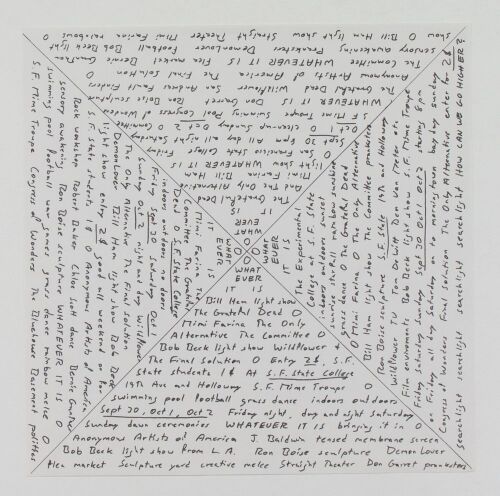 WHAT
EVER
IT IS
The Grateful Dead
And The Only Alternative
Mimi Farina Bill Ham
light show WHATEVER IT IS
O San Francisco State College Friday
Sept 30 8pm all day all night Saturday
Oct 1 O clean-up Sunday Oct 2 O
S.F. Mime Troupe Swimming Pool Congress of Wonders
WHATEVER IT IS Don Garret Ron Boise sculpture
The Grateful Dead Wildflower San Andreas Fault Finders
Anonymous Artists of America The Final Solution O
The Committee WHATEVER IT IS flea market Bernie
sensory awakening Pranksters DemonLover Football Bob Beck light
show O Bill Ham light show Straight Theater Mimi Farina rainbows O
WHAT
EVER
IT IS
The Experimental
College at S.F. State
indoors outdoors sunset
sunrise waterfall rainbow sunshine
grass dance O The Grateful Dead O
O Mimi Farina O The Only Alternative
Bill Ham light show The Committee pranksters
Ron Boise sculpture S.F. State 19th and Holloway
Wildflower TV from DeWitt Don Van Meter etc.
Film environments Bob Beck light show S.F. Mime Troupe
Congress of Wonders Final Solution The Only Alternative Enter for 2$
searchlight searchlight searchlight searchlight HOW CAN WE GO HIGHER?
WHAT
EVER
IT IS
Bill Ham light show
The Grateful Dead O
Mimi Farina The Only
Alternative The Committee O
Bob Beck light show Wildflower +
The Final Solution O Entry 2$, S.F.
State students 1$ At S.F. State College
19th Ave and Holloway S.F. Mime Troupe O
swimming pool football grass dance indoors outdoors
Sept 30, Oct 1, Oct 2 Friday night, day and night Saturday
Sunday dawn ceremonies WHATEVER IT IS bringing it in O
Anonymous Artists of America J. Baldwin tensed membrane screen
Bob Beck light show from L.A. Ron Boise sculpture Demon Lover
flea market Sculpture yard creative melee Straight Theater Don Garret pranksters
WHAT
EVER
IT IS
Mimi Farina The
Committee The Grateful
Dead O S.F. State College
indoors outdoors no doors
Friday Sept 30 Saturday Oct 1
Sunday Oct 2 night and day Wildflower
The Only Alternative The Final Solution O
DemonLover Bill Ham light show Bob Beck
light show entry 2$ good all weekend or for
S.F. State students 1$ O Anonymous Artists of America
Rock workshop Robert Baker Chloe Scott dance Bernie
sensory awakening Ron Boise sculpture WHATEVER IT IS O
swimming pool football war games grass dance rainbow melee O
S.F. Mime Troupe Congress of Wonders The Bluehouse Basement